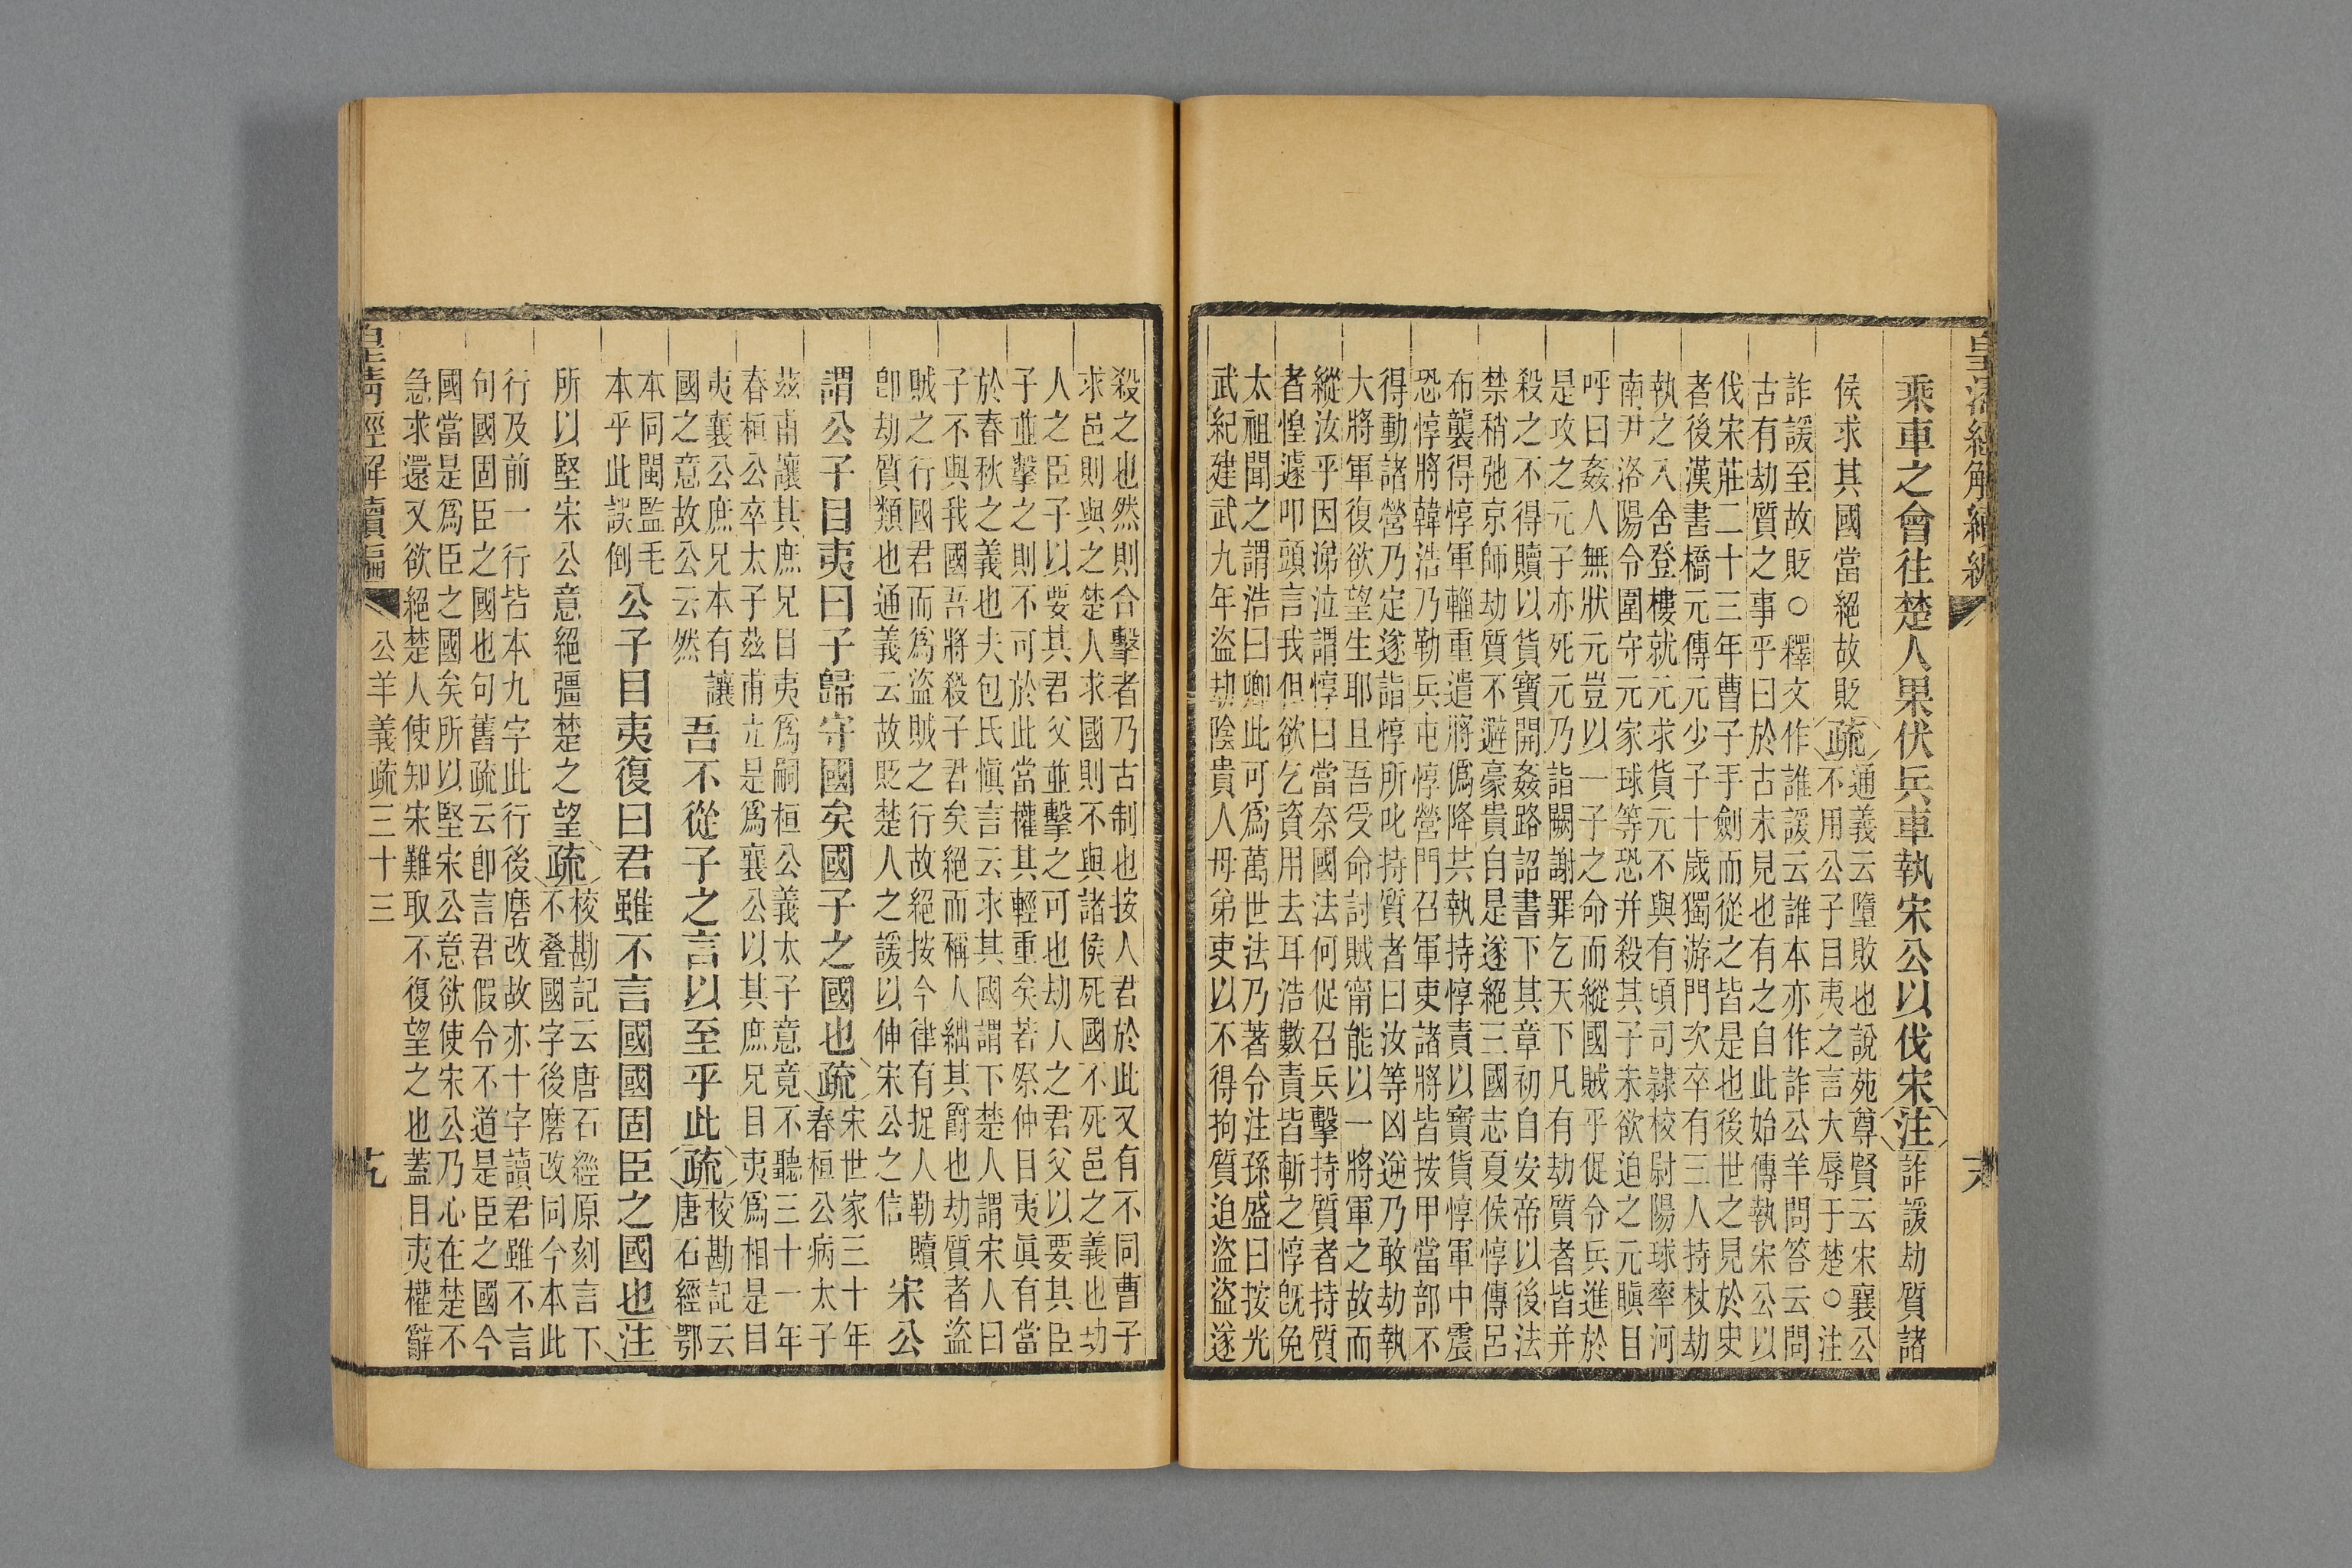 皇清經解續編
乘車之會往楚人果伏兵車執宋公以伐宋注詐諼劫質諸
侯求其國當絕故貶疏
通義云墮敗也說苑尊賢云宋襄公
不用公子目夷之言大辱于楚○注
詐諼至故貶○釋文作誰諼云誰本亦作詐公羊問答云問
古有劫質之事乎曰於古未見也有之自此始傳執宋公以
伐宋莊二十三年曹子手劍而從之皆是也後世之見於史
者後漢書橋元傳元少子十歲獨游門次卒有三人持杖劫
執之入舍登樓就元求貨元不與有頃司隸校尉陽球率河
南尹洛陽令圍守元家球等恐并殺其子未欲迫之元瞋目
呼曰姦人無狀元豈以一子之命而縱國賊乎促令兵進於
是攻之元子亦死元乃詣闕謝罪乞天下凡有劫質者皆并
殺之不得贖以貨寶開姦路詔書下其章初自安帝以後法
禁稍弛京師劫質不避豪貴自是遂絕三國志夏侯惇傳呂
布襲得惇軍輜重遣將僞降共執持惇責以寶貨惇軍中震
恐惇將韓浩乃勒兵屯惇營門召軍吏諸將皆按甲當部不
得動諸營乃定遂詣惇所叱持質者曰汝等凶逆乃敢劫執
大將軍復欲望生耶且吾受命討賊甯能以一將軍之故而
縱汝乎因涕泣謂惇曰當奈國法何促召兵擊持質者持質
者惶遽叩頭言我但欲乞資用去耳浩數責皆斬之惇旣免
太祖聞之謂浩曰卿此可爲萬世法乃著令注孫盛曰按光
武紀建武九年盜劫陰貴人母弟吏以不得拘質迫盜盜遂
殺之也然則合擊者乃古制也按人君於此又有不同曹子
求邑則與之楚人求國則不與諸侯死國不死邑之義也劫
人之臣子以要其君父並擊之可也劫人之君父以要其臣
子並擊之則不可於此當權其輕重矣若祭仲目夷眞有當
於春秋之義也夫包氏愼言云求其國謂下楚人謂宋人曰
子不與我國吾將殺子君矣絕而稱人絀其爵也劫質者盜
賊之行國君而爲盜賊之行故絕按今律有捉人勒贖
卽劫質類也通義云故貶楚人之諼以伸宋公之信
宋公
謂公子目夷曰子歸守國矣國子之國也疏
宋世家三十年
春桓公病太子
茲甫讓其庶兄目夷爲嗣桓公義太子意竟不聽三十一年
春桓公卒太子茲甫立是爲襄公以其庶兄目夷爲相是目
夷襄公庶兄本有讓
國之意故公云然
吾不從子之言以至乎此疏
校勘記云
唐石經鄂
本同閩監毛
本乎此誤倒
公子目夷復曰君雖不言國國固臣之國也注
所以堅宋公意絕彊楚之望疏
校勘記云唐石經原刻言下
不疊國字後磨改同今本此
行及前一行皆本九字此行後磨改故亦十字讀君雖不言
句國固臣之國也句舊疏云卽言君假令不道是臣之國今
國當是爲臣之國矣所以堅宋公意欲使宋公乃心在楚不
急求還又欲絕楚人使知宋難取不復望之也蓋目夷權辭
皇清經解續編
公羊義疏三十三